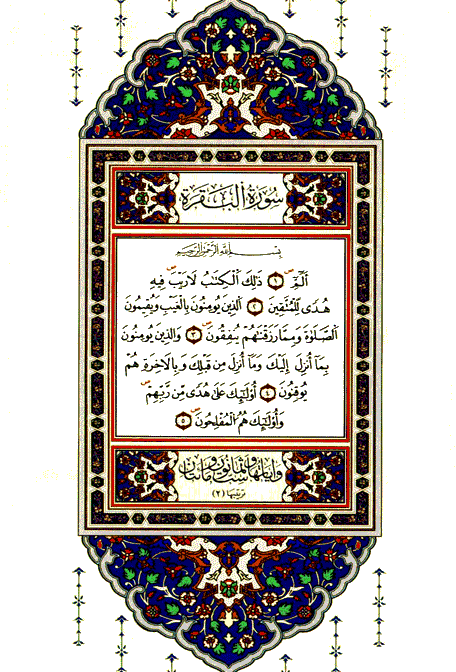 سُورَةُ الْبَقَرَةِ
بِسْمِ اللَّهِ الرَّحْمَٰنِ الرَّحِيمِ
الٓمٓ ۝١ ذَٰلِكَ الْكِتَابُ لَا رَيْبَ فِيهِ
هُدًى لِّلْمُتَّقِينَ ۝٢ الَّذِينَ يُومِنُونَ بِالْغَيْبِ وَيُقِيمُونَ
الصَّلَوٰةَ وَمِمَّا رَزَقْنَٰهُمْ يُنفِقُونَ ۝٣ وَالَّذِينَ يُومِنُونَ
بِمَا أُنزِلَ إِلَيْكَ وَمَا أُنزِلَ مِن قَبْلِكَ وَبِالَاخِرَةِ هُمْ
يُوقِنُونَ ۝٤ أُوْلَٰئِكَ عَلَىٰ هُدًى مِّن رَّبِّهِمْ
وَأُوْلَٰئِكَ هُمُ الْمُفْلِحُونَ ۝٥
وآياتها ثمانون وست ومائتان
ترتيبها (٢)